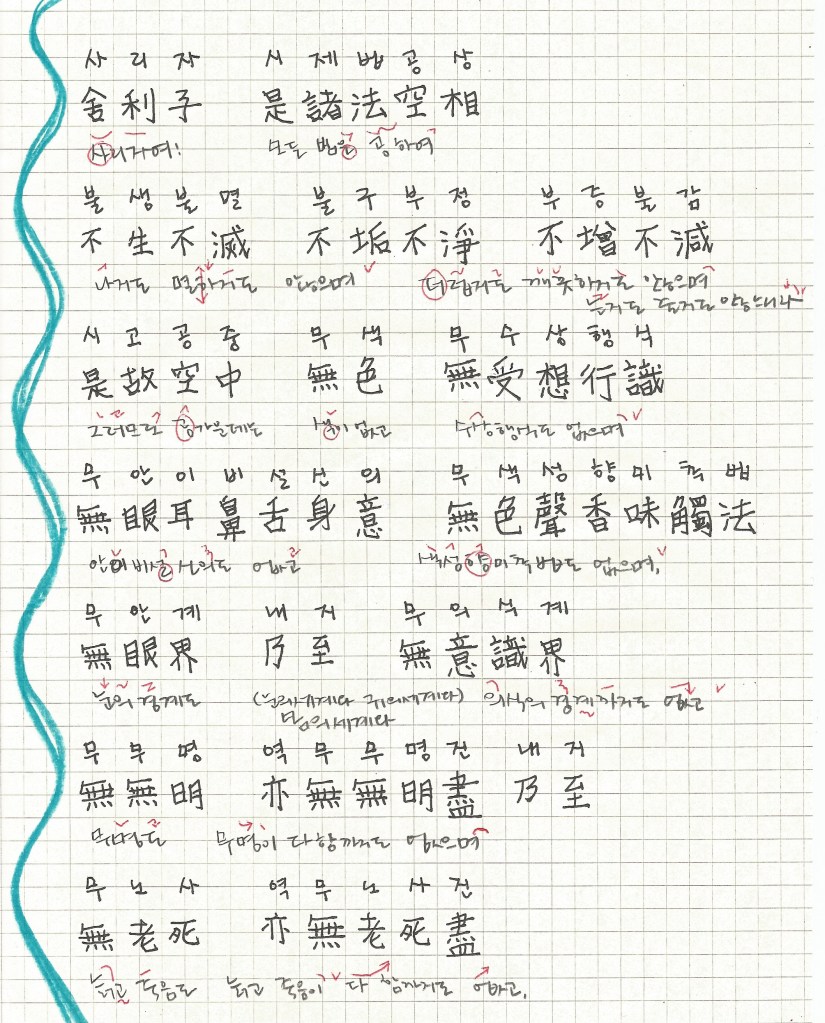 사 리 자 시 제 법 공 상
舍利子 是諸法空相
사리자여! 모든 법은 공하여
불 생 불 멸 불 구 부 정 부 증 불 감
不生不滅 不垢不淨 不增不減
나지도 멸하지도 않으며 더럽지도 깨끗하지도 않으며
늘지도 줄지도 않느니라
시 고 공 중 무 색 무 수 상 행 식
是故空中 無色 無受想行識
그러므로 공가운데는 색이 없고 수상행식도 없으며
무 안 이 비 설 신 의 무 색 성 향 미 촉 법
無眼耳鼻舌身意 無色聲香味觸法
안이비설신의도 없고 색성향미촉법도 없으며,
무 안 계 내 지 무 의 식 계
無眼界 乃至 無意識界
눈의 경계도 (눈의세계다 귀의세계다) 의식의 경계까지도 없고
몸의세계다
무 무 명 역 무 무 명 진 내 지
無無明 亦無無明盡 乃至
무명도 무명이 다함까지도 없으며
무 노 사 역 무 노 사 진
無老死 亦無老死盡
늙고 죽음도 늙고 죽음이 다 함까지도 없고,